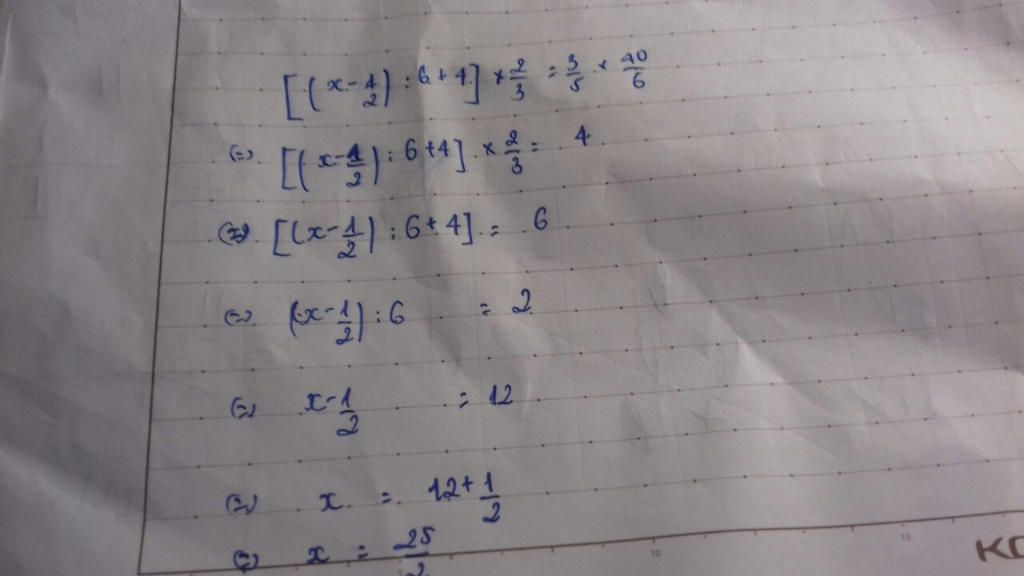 [(x - 1/2) : 6 + 4] × 2/3 = 3/5 × 40/6
(=) [(x - 1/2) : 6 + 4] × 2/3 = 4
(=) [(x - 1/2) : 6 + 4] = 6
(=) (x - 1/2) : 6 = 2
(=) x - 1/2 = 12
(=) x = 12 + 1/2
(=) x = 25/2
10 15